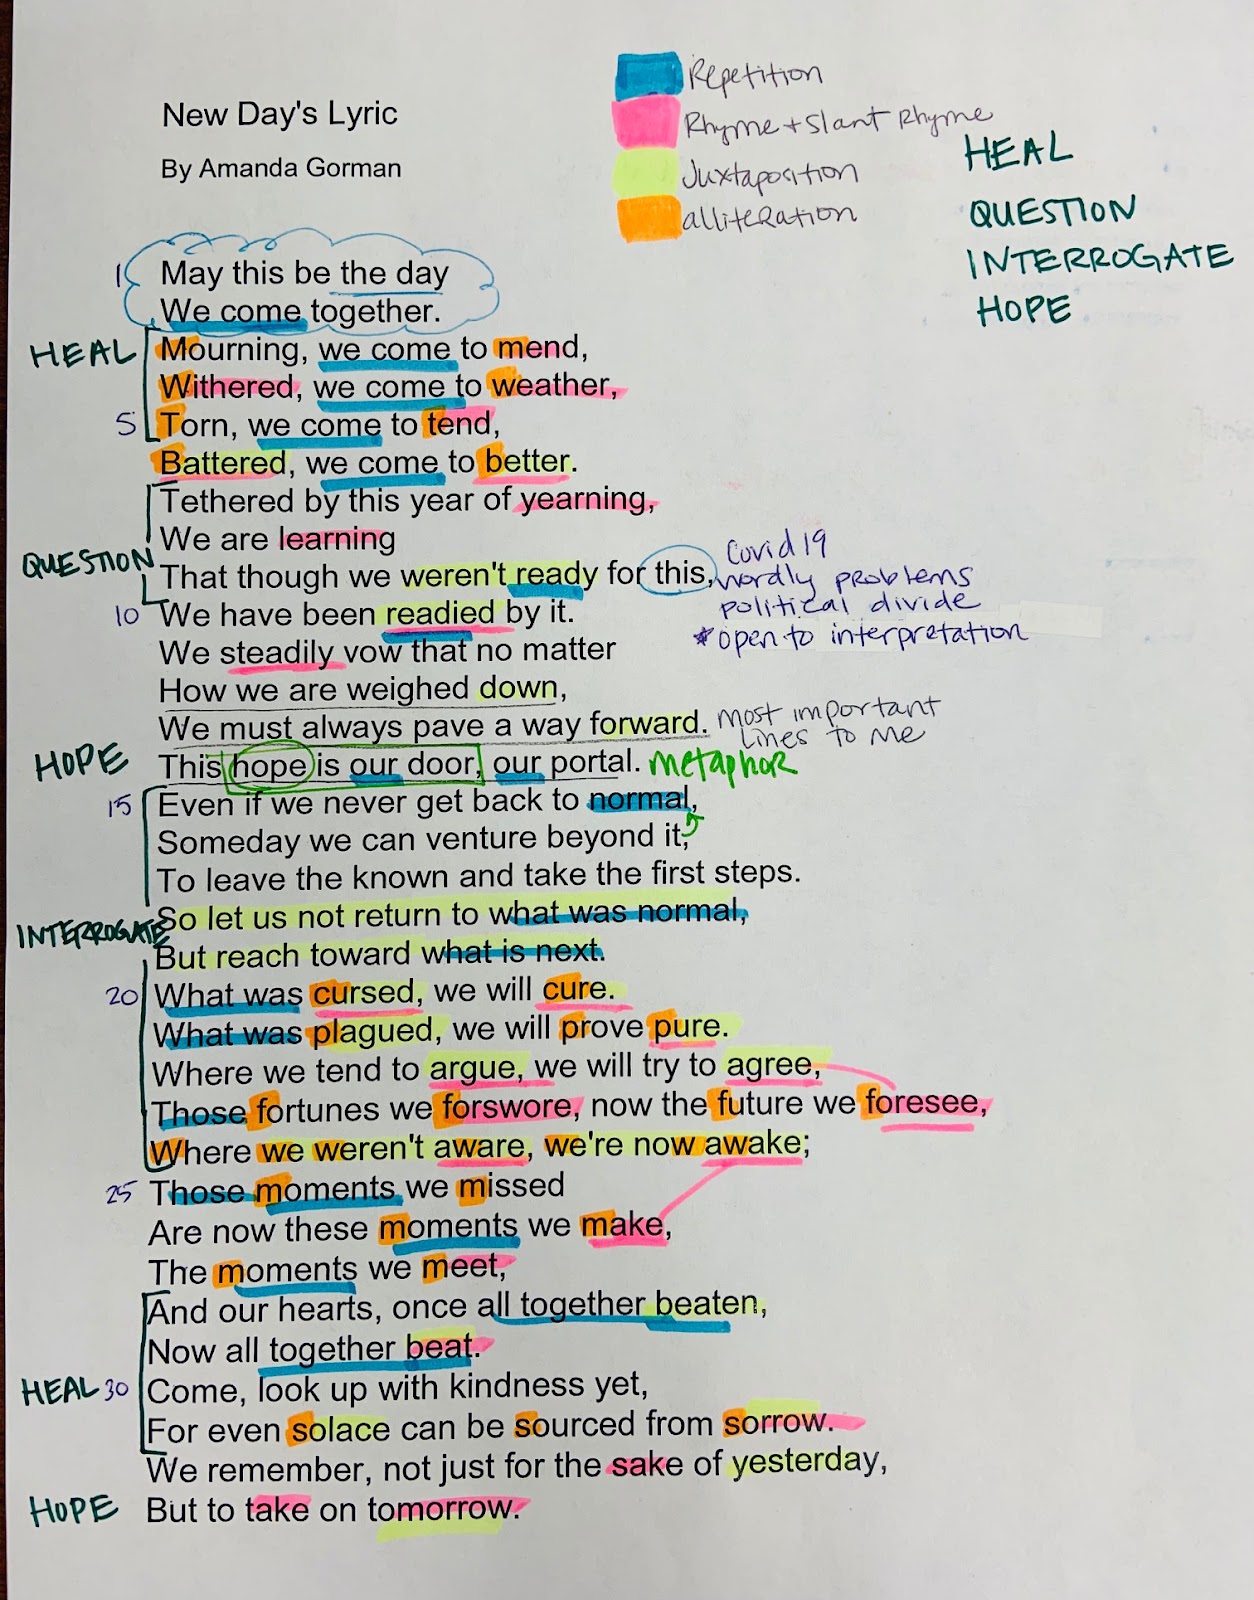 Repetition
New Day's Lyric
Rhyme + Slant Rhyme
HEAL
By Amanda Gorman
Juxtaposition
alliteration
QUESTION
INTERROGATE
HOPE
1 May this be the day
We come together.
HEAL Mourning, we come to mend,
Withered, we come to weather,
5 Torn, we come to tend,
Battered, we come to better.
Tethered by this year of yearning,
We are learning
QUESTION That though we weren't ready for this, Covid 19
wordly problems
political divide
*open to interpretation
10 We have been readied by it.
We steadily vow that no matter
How we are weighed down,
We must always pave a way forward. most important
lines to me
HOPE This hope is our door, our portal. metaphor
15 Even if we never get back to normal,
Someday we can venture beyond it,
To leave the known and take the first steps.
So let us not return to what was normal,
INTERROGATE But reach toward what is next.
20 What was cursed, we will cure.
What was plagued, we will prove pure.
Where we tend to argue, we will try to agree,
Those fortunes we forswore, now the future we foresee,
Where we weren't aware, we're now awake;
25 Those moments we missed
Are now these moments we make,
The moments we meet,
And our hearts, once all together beaten,
Now all together beat.
HEAL 30 Come, look up with kindness yet,
For even solace can be sourced from sorrow.
We remember, not just for the sake of yesterday,
HOPE But to take on tomorrow.